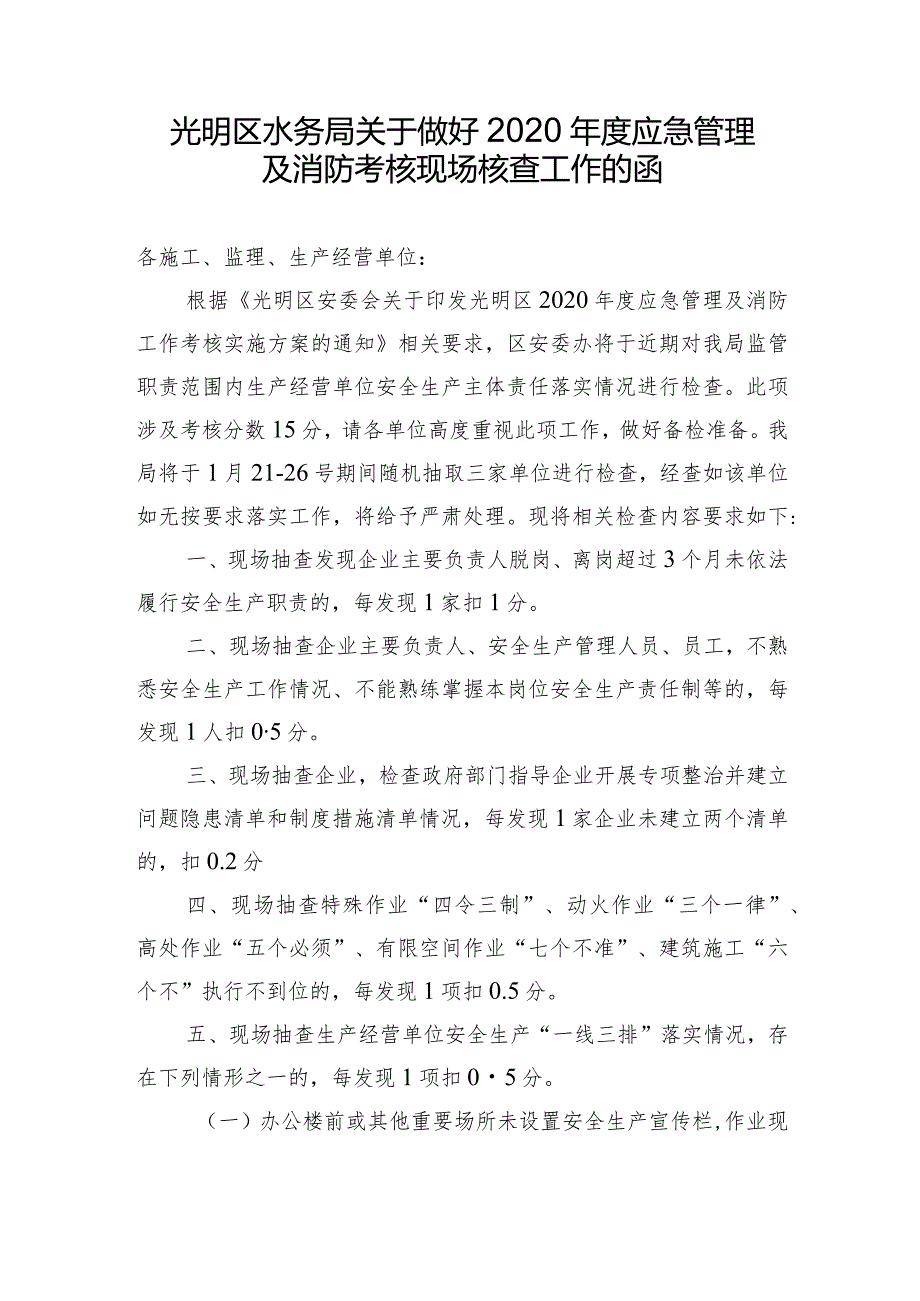 光明区水务局关于做好 2020 年度应急管理
及消防考核现场核查工作的函
各施工、监理、生产经营单位：
根据《光明区安委会关于印发光明区 2020 年度应急管理及消防
工作考核实施方案的通知》相关要求，区安委办将于近期对我局监管
职责范围内生产经营单位安全生产主体责任落实情况进行检查。此项
涉及考核分数 15 分，请各单位高度重视此项工作，做好备检准备。我
局将于 1 月 21-26 号期间随机抽取三家单位进行检查，经查如该单位
如无按要求落实工作，将给予严肃处理。现将相关检查内容要求如下：
一、现场抽查发现企业主要负责人脱岗、离岗超过 3 个月未依法
履行安全生产职责的，每发现 1 家扣 1 分。
二、现场抽查企业主要负责人、安全生产管理人员、员工，不熟
悉安全生产工作情况、不能熟练掌握本岗位安全生产责任制等的，每
发现 1 人扣 0·5 分。
三、现场抽查企业，检查政府部门指导企业开展专项整治并建立
问题隐患清单和制度措施清单情况，每发现 1 家企业未建立两个清单
的，扣 0.2 分
四、现场抽查特殊作业“四令三制”、动火作业“三个一律”、
高处作业“五个必须”、有限空间作业“七个不准”、建筑施工“六
个不”执行不到位的，每发现 1 项扣 0.5 分。
五、现场抽查生产经营单位安全生产“一线三排”落实情况，存
在下列情形之一的，每发现 1 项扣 0・5 分。
（一）办公楼前或其他重要场所未设置安全生产宣传栏,作业现